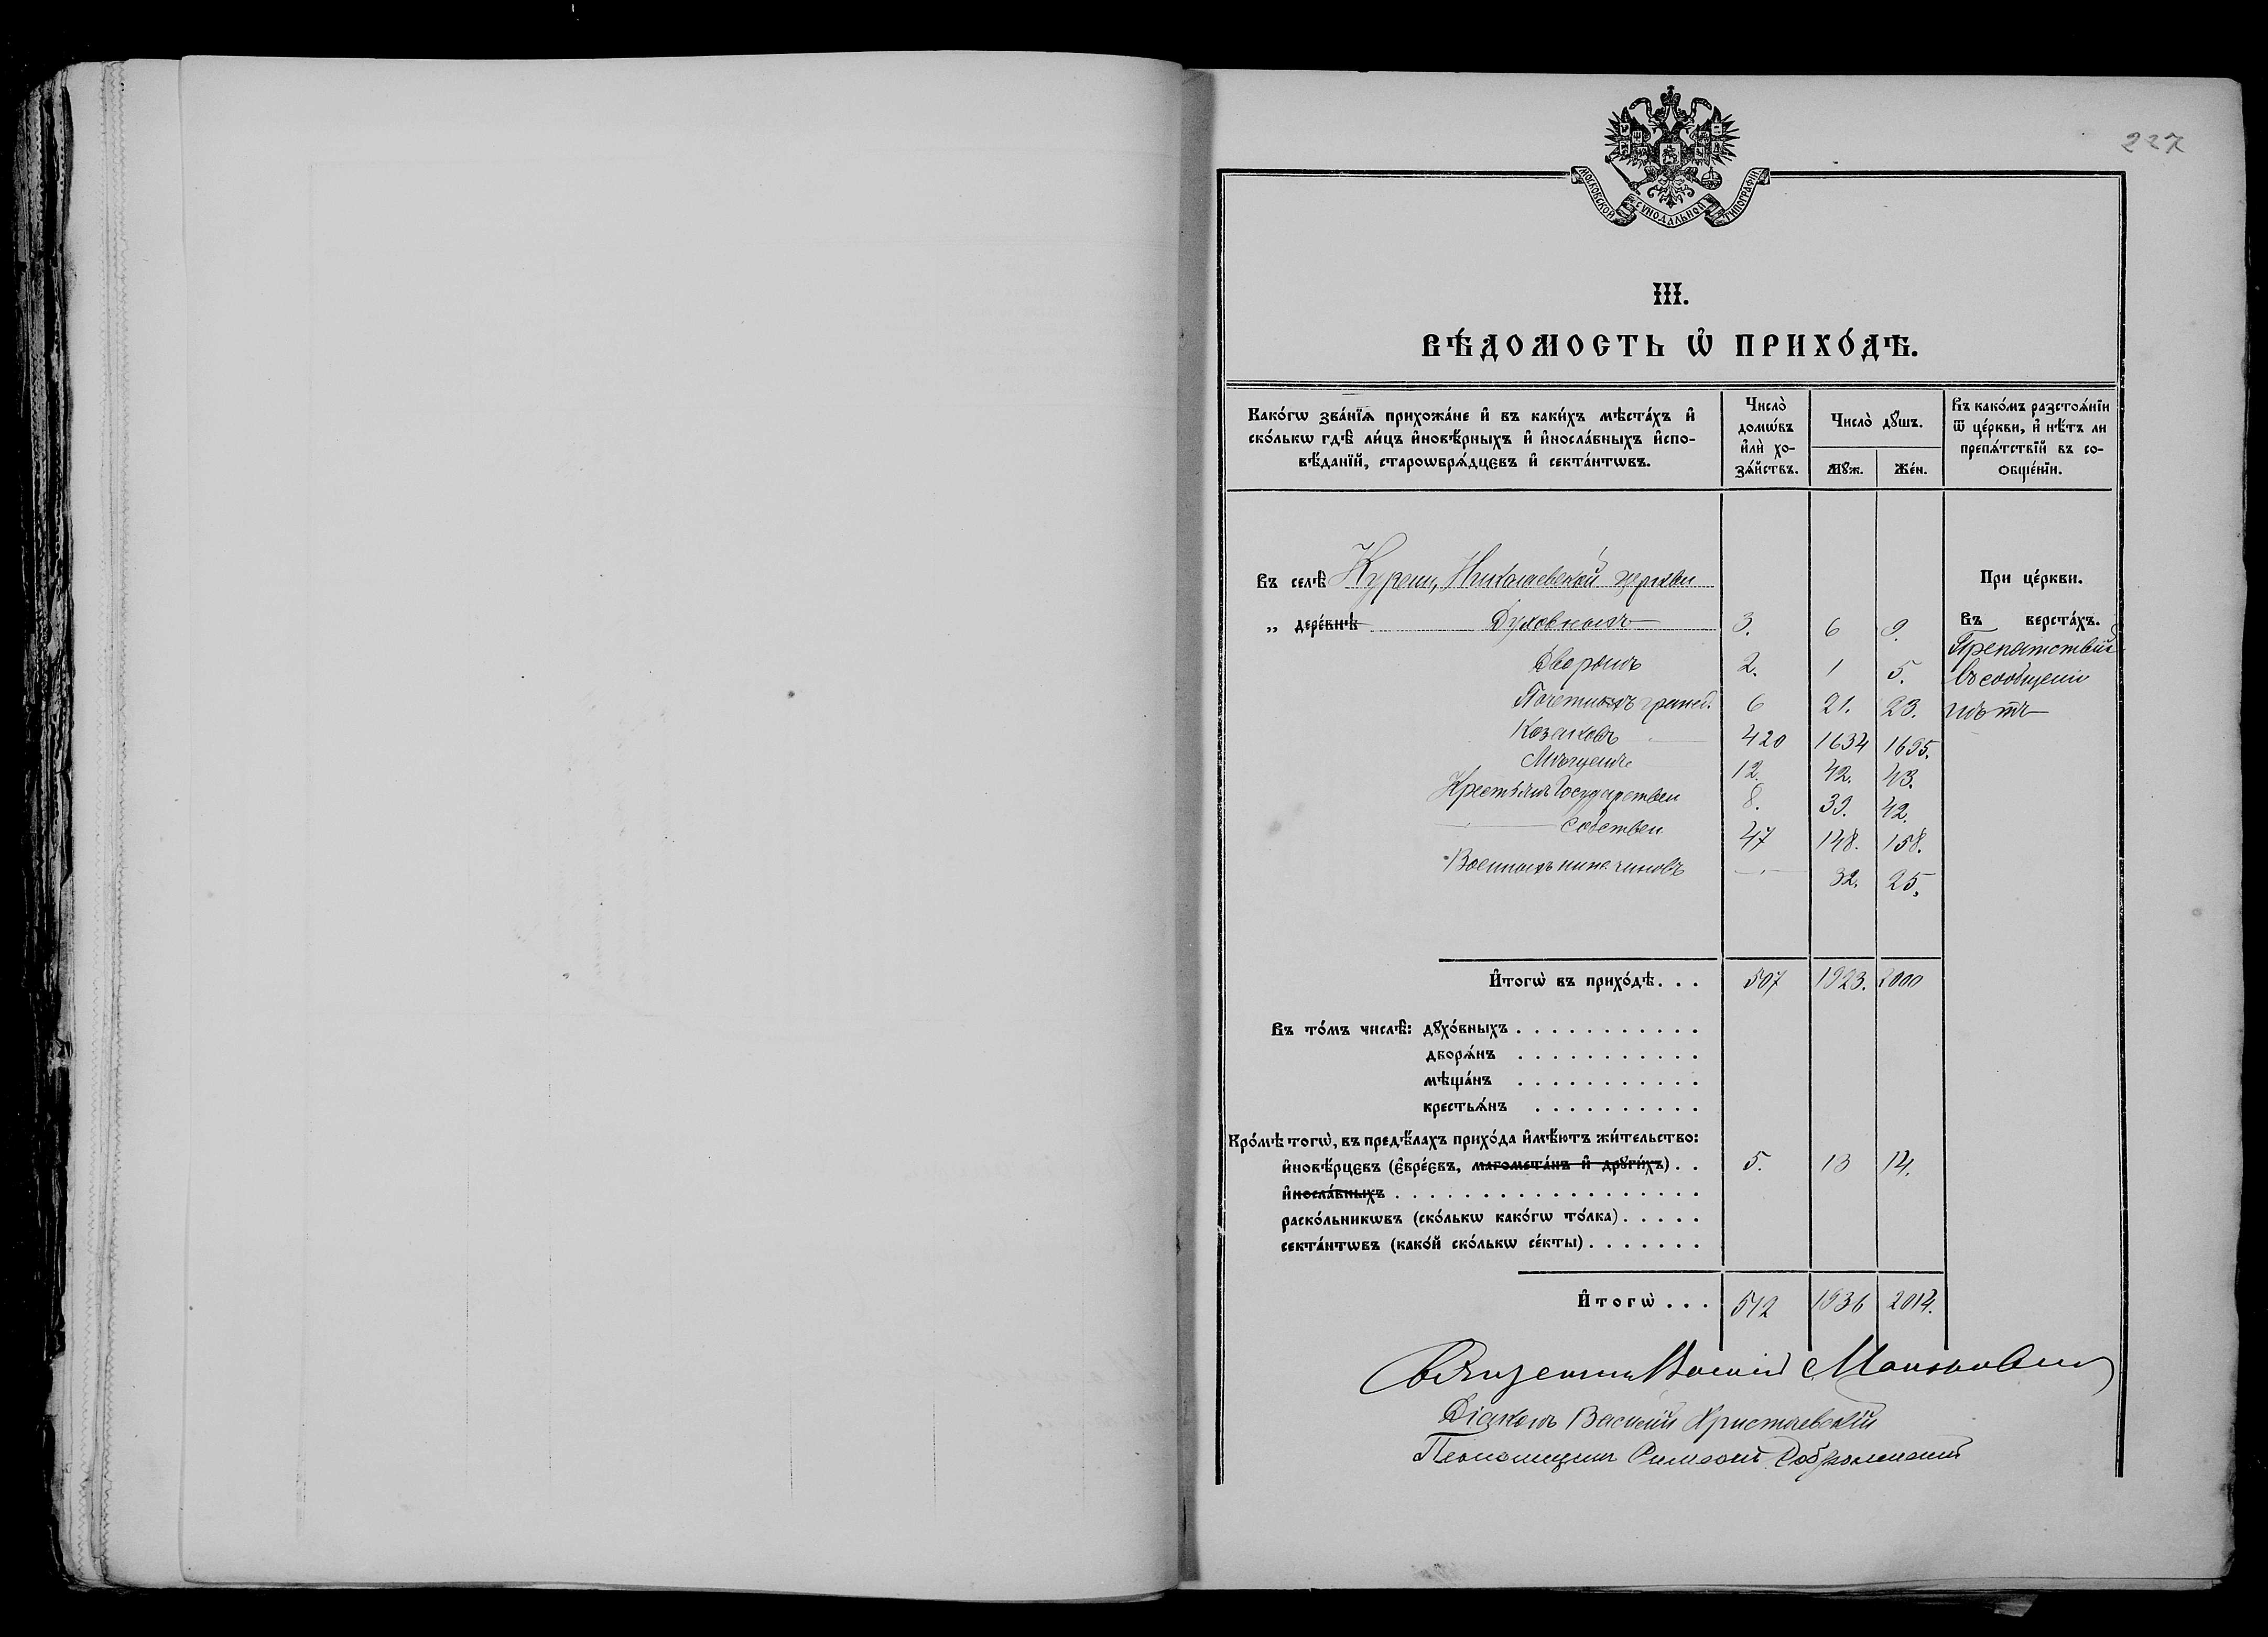 227
МОСКОВСКОЙ СѴНОДАЛЬНОЙ ТИПОГРАФІИ
III.
ВѢ́ДОМОСТЬ Ѡ҆ ПРИХО́ДѢ.
Како́гѡ зва́нїѧ прихожа́не и҆ въ каки́хъ мѣста́хъ и҆
ско́лькѡ гдѣ̀ ли́цъ и҆новѣ́рныхъ и҆ и҆носла́вныхъ и҆спо-
вѣ́данїй, староѡбрѧ́дцевъ и҆ секта́нтѡвъ.
Число̀
домѡ́въ
и҆лѝ хо-
зѧ́йствъ.
Число̀ дꙋ́шъ.
Мꙋ́ж.
Же́н.
Въ како́мъ разстоѧ́нїи
ѿ це́ркви, и҆ нѣ́тъ ли
препѧ́тствїй въ со-
ѻбще́нїи.
Въ селѣ̀ Курени, Николаевской церкви
При це́ркви.
„ дере́внѣ Духовныхъ 3. 6 9.
Въ верста́хъ.
Препятствій
Дворянъ 2. 1 5.
въ сообщеніи
Почетныхъ гражд. 6 21. 23.
нѣтъ
Козаковъ 420 1634 1695.
Мѣщанъ 12. 42. 43.
Крестьянъ Государствен 8. 39. 42.
Собствен. 47 148. 158.
Военныхъ ниж. чиновъ — 32. 25.
И҆тогѡ̀ въ прихо́дѣ. . . 507 1923. 2000
Въ то́мъ числѣ̀: дꙋхо́вныхъ . . . . . . . . . . .
дворѧ́нъ . . . . . . . . . . .
мѣща́нъ . . . . . . . . . . .
крестьѧ́нъ . . . . . . . . . .
Кро́мѣ тогѡ̀, въ предѣ́лахъ прихо́да и҆мѣ́ютъ жи́тельство:
и҆новѣ́рцевъ (є҆вре́євъ, магомета́нъ и҆ дрꙋги́хъ) . . 5. 13 14.
и҆носла́вныхъ . . . . . . . . . . . . . . . . . .
раско́льникѡвъ (ско́лькѡ како́гѡ то́лка) . . . . .
секта́нтѡвъ (како́й ско́лькѡ се́кты) . . . . . . .
И҆тогѡ̀ . . . 512 1936 2014.
Священникъ
Діаконъ Василій Христаевскій
Псаломщикъ Симеонъ